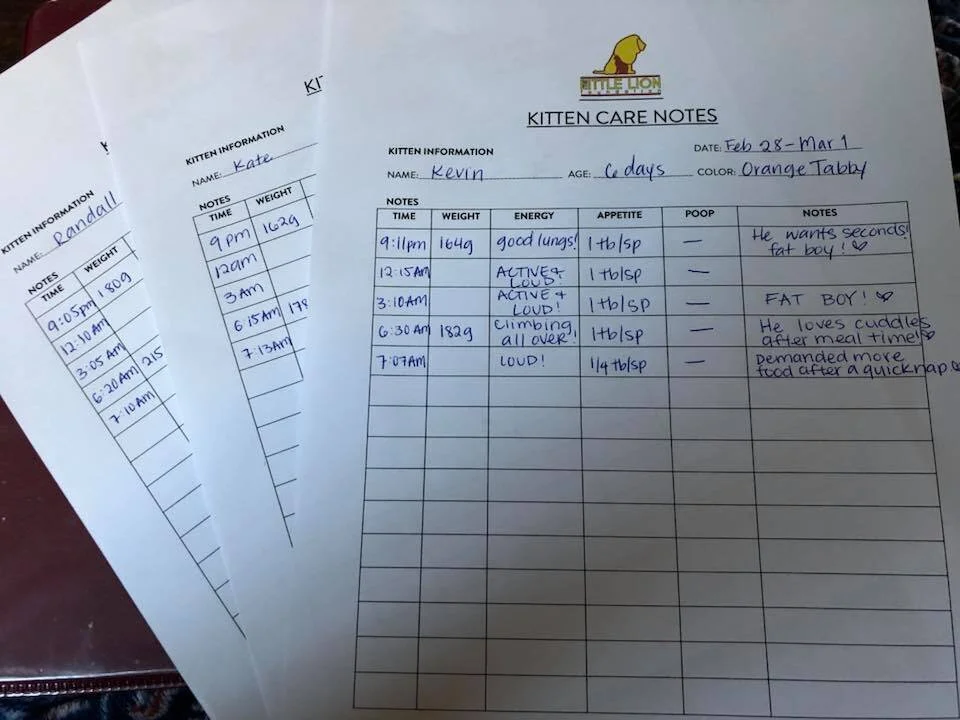 LITTLE LION
FOUNDATION
KITTEN CARE NOTES
KITTEN INFORMATION
DATE: Feb 28 - Mar 1
NAME: Kevin AGE: 6 days COLOR: Orange Tabby
NOTES
TIME WEIGHT ENERGY APPETITE POOP NOTES
9:11pm 164g good lungs! 1 tb/sp — He wants seconds!
fat boy!
12:15AM ACTIVE + LOUD! 1 tb/sp —
3:10AM ACTIVE + LOUD! 1 tb/sp — FAT BOY!
6:30AM 182g Climbing all over! 1 tb/sp — He loves cuddles
after meal time!
7:07AM LOUD! 1/4 tb/sp — Demanded more
food after a quick nap
KI
KITTEN INFORMATION
NAME: Kate
NOTES
TIME WEIGHT
9pm 162g
12am
3AM
6:15AM 178
7:13AM
KITTEN INFORMATION
NAME: Randall
NOTES
TIME WEIGHT
9:05pm 180g
12:10AM
3:05AM
6:20AM 215
7:10AM